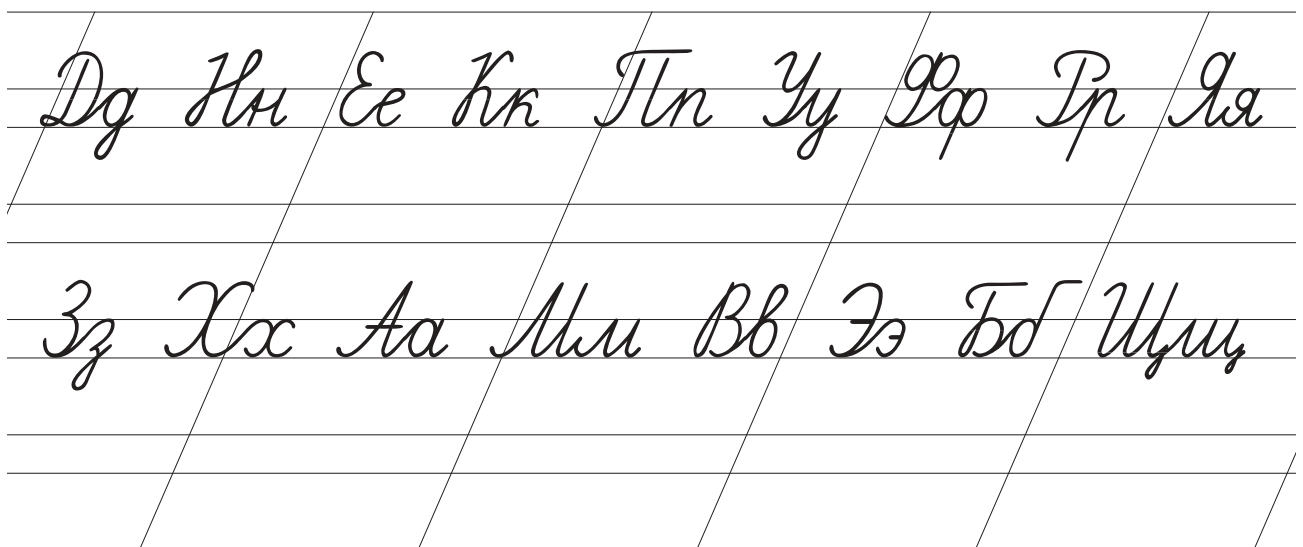 Дд Нн Ее Кк Пп Уу Фф Рр Яя
Зз Хх Аа Мм Вв Ээ Бб Щщ